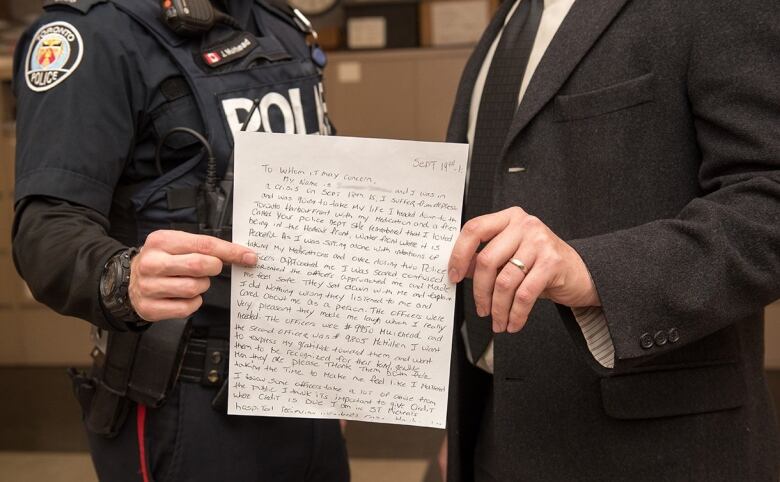 TORONTO
POLICE
J. Muirhead
POL
Sept 19th
To Whom it may concern,
My Name is and I was in
a crisis on Sept 12th 15, I suffer from depress
and was going to take my life I headed down to the
Toronto Harbourfront with my Medication and a
called your police dept she remembered that I loved
being in the Harbour front water front where it is
Peaceful As I was sitting alone with intentions of
taking my Medications and over dosing two Police
officers approached me I was scared confused
the officers approached me and Made
me feel safe. They sat down with me and explain
I did Nothing wrong they listened to me and
Cared About me as a person. The officers were
Very pleasent they made me laugh when I really
Needed. The officers were # 9950 Muirhead and
the second officer was # 9805 McMillen I want
to express my gratitude toward them and want
them to be recognized for their kind, gentle
Men they are please Thank them both for
taking the Time to Make me feel like I Mattered
I know some officers take a lot of abuse from
the public I think its important to give Credit
where Credit is Due I am in ST Michaels
hospital recieving